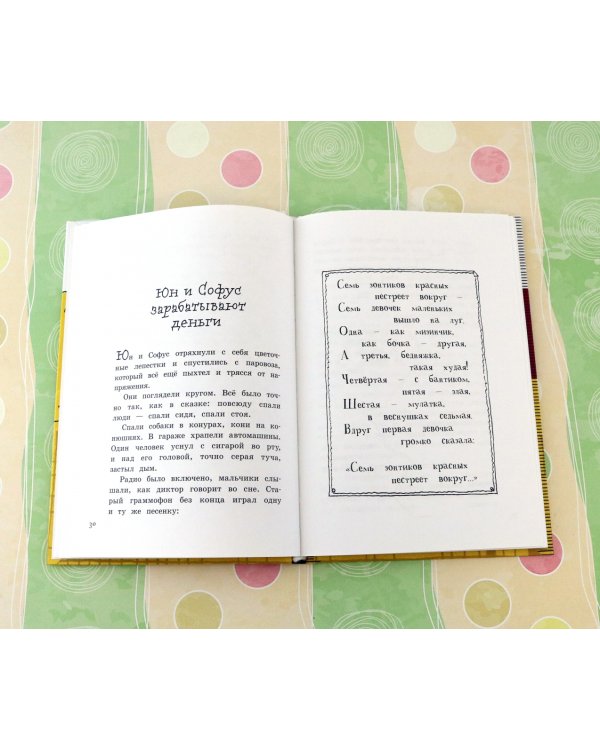 Юн и Софус
зарабатывают
деньги
Юн и Софус отряхнули с себя цветоч-
ные лепестки и спустились с паровоза,
который всё ещё пыхтел и трясся от на-
пряжения.
Они поглядели кругом. Всё было точ-
но так, как в сказке: повсюду спали
люди — спали сидя, спали стоя.
Спали собаки в конурах, кони на ко-
нюшнях. В гараже храпели автомашины.
Один человек уснул с сигарой во рту,
и над его головой, точно серая туча,
застыл дым.
Радио было включено, мальчики слы-
шали, как диктор говорит во сне. Ста-
рый граммофон без конца играл одну
и ту же песенку:
30
Семь зонтиков красных
пестреет вокруг —
Семь девочек маленьких
вышло на луг.
Одна — как мизинчик,
как бочка — другая,
А третья, бедняжка,
такая худая!
Четвёртая — с бантиком,
пятая — злая,
Шестая — мулатка,
в веснушках седьмая.
Вдруг первая девочка
громко сказала:
«Семь зонтиков красных
пестреет вокруг...»